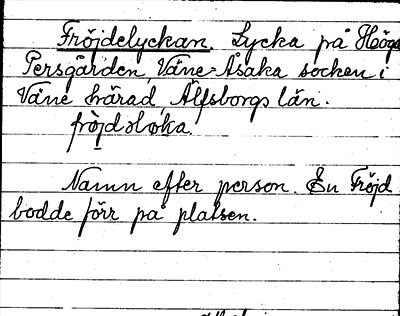 Fröjdelyckan. Lycka på Höga
Persgården, Väne-Åsaka socken i
Väne härad, Älfsborgs län.
Namn efter person. En Fröjd
bodde förr på platsen.